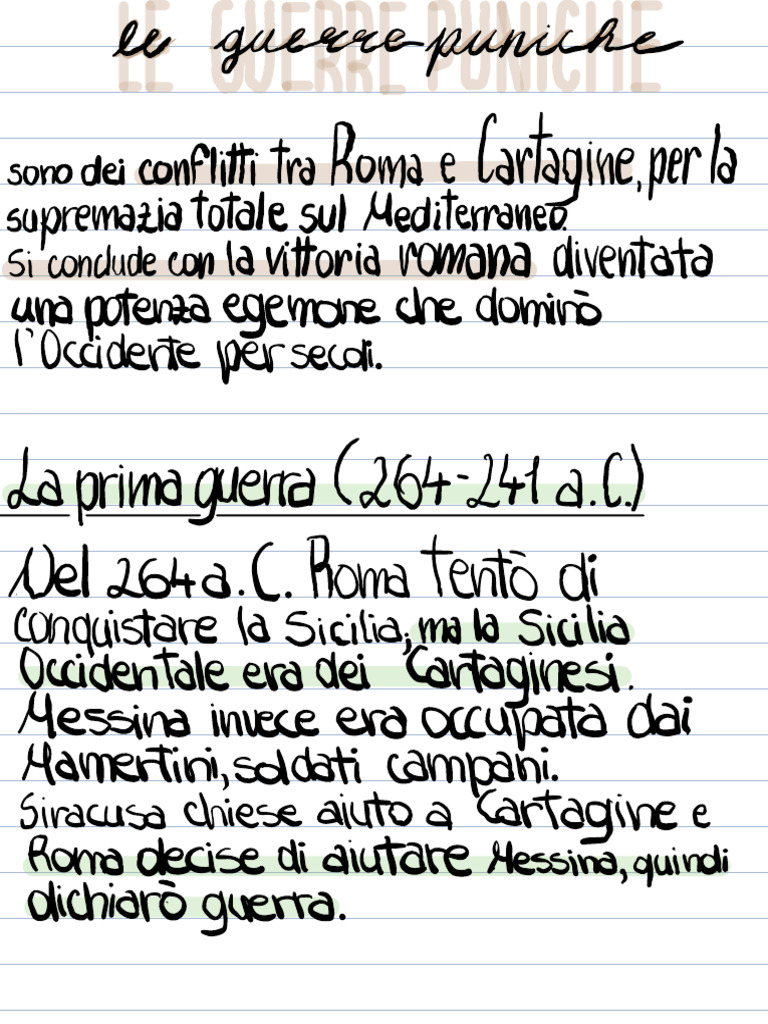 le guerre puniche
sono dei conflitti tra Roma e Cartagine, per la
supremazia totale sul Mediterraneo.
Si conclude con la vittoria romana diventata
una potenza egemone che dominò
l'Occidente per secoli.
La prima guerra (264-241 a.C.)
Nel 264 a.C. Roma tentò di
conquistare la Sicilia, ma la Sicilia
Occidentale era dei Cartaginesi.
Messina invece era occupata dai
Mamertini, soldati campani.
Siracusa chiese aiuto a Cartagine e
Roma decise di aiutare Messina, quindi
dichiarò guerra.